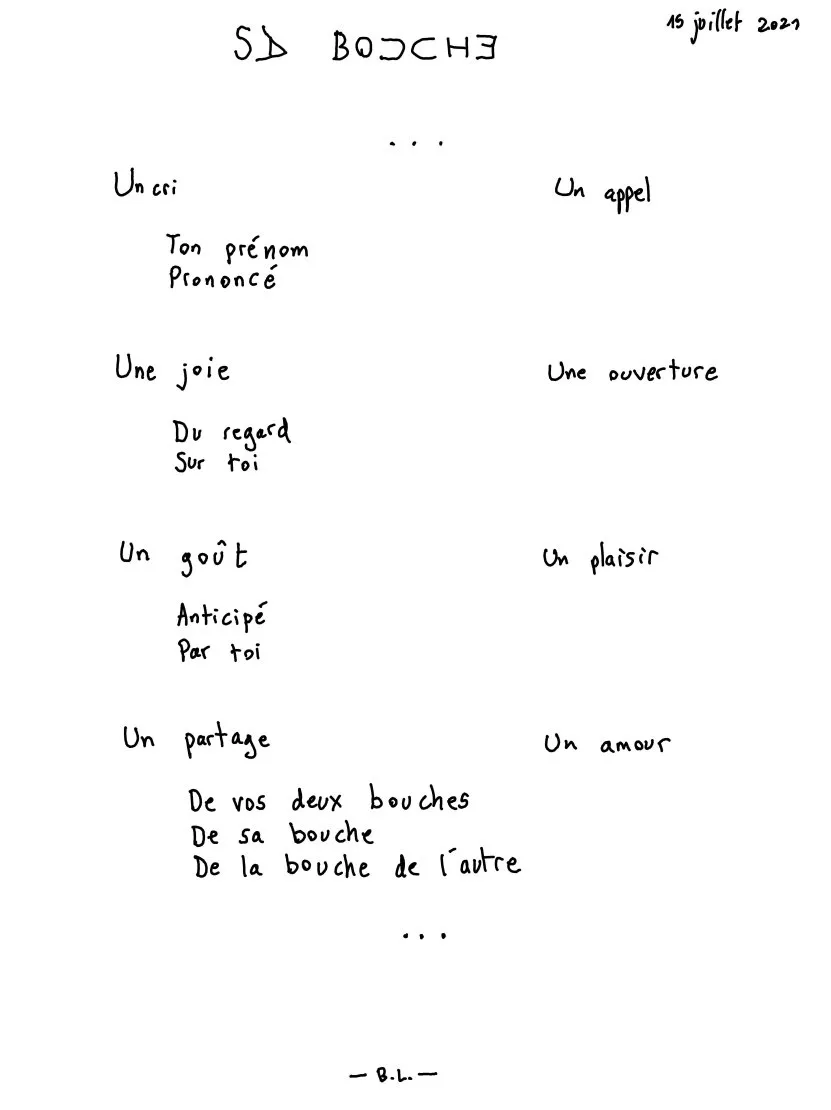 15 juillet 2021
SA BOUCHE
...
Un cri Un appel
Ton prénom
Prononcé
Une joie Une ouverture
Du regard
Sur toi
Un goût Un plaisir
Anticipé
Par toi
Un partage Un amour
De vos deux bouches
De sa bouche
De la bouche de l'autre
...
— B.L. —